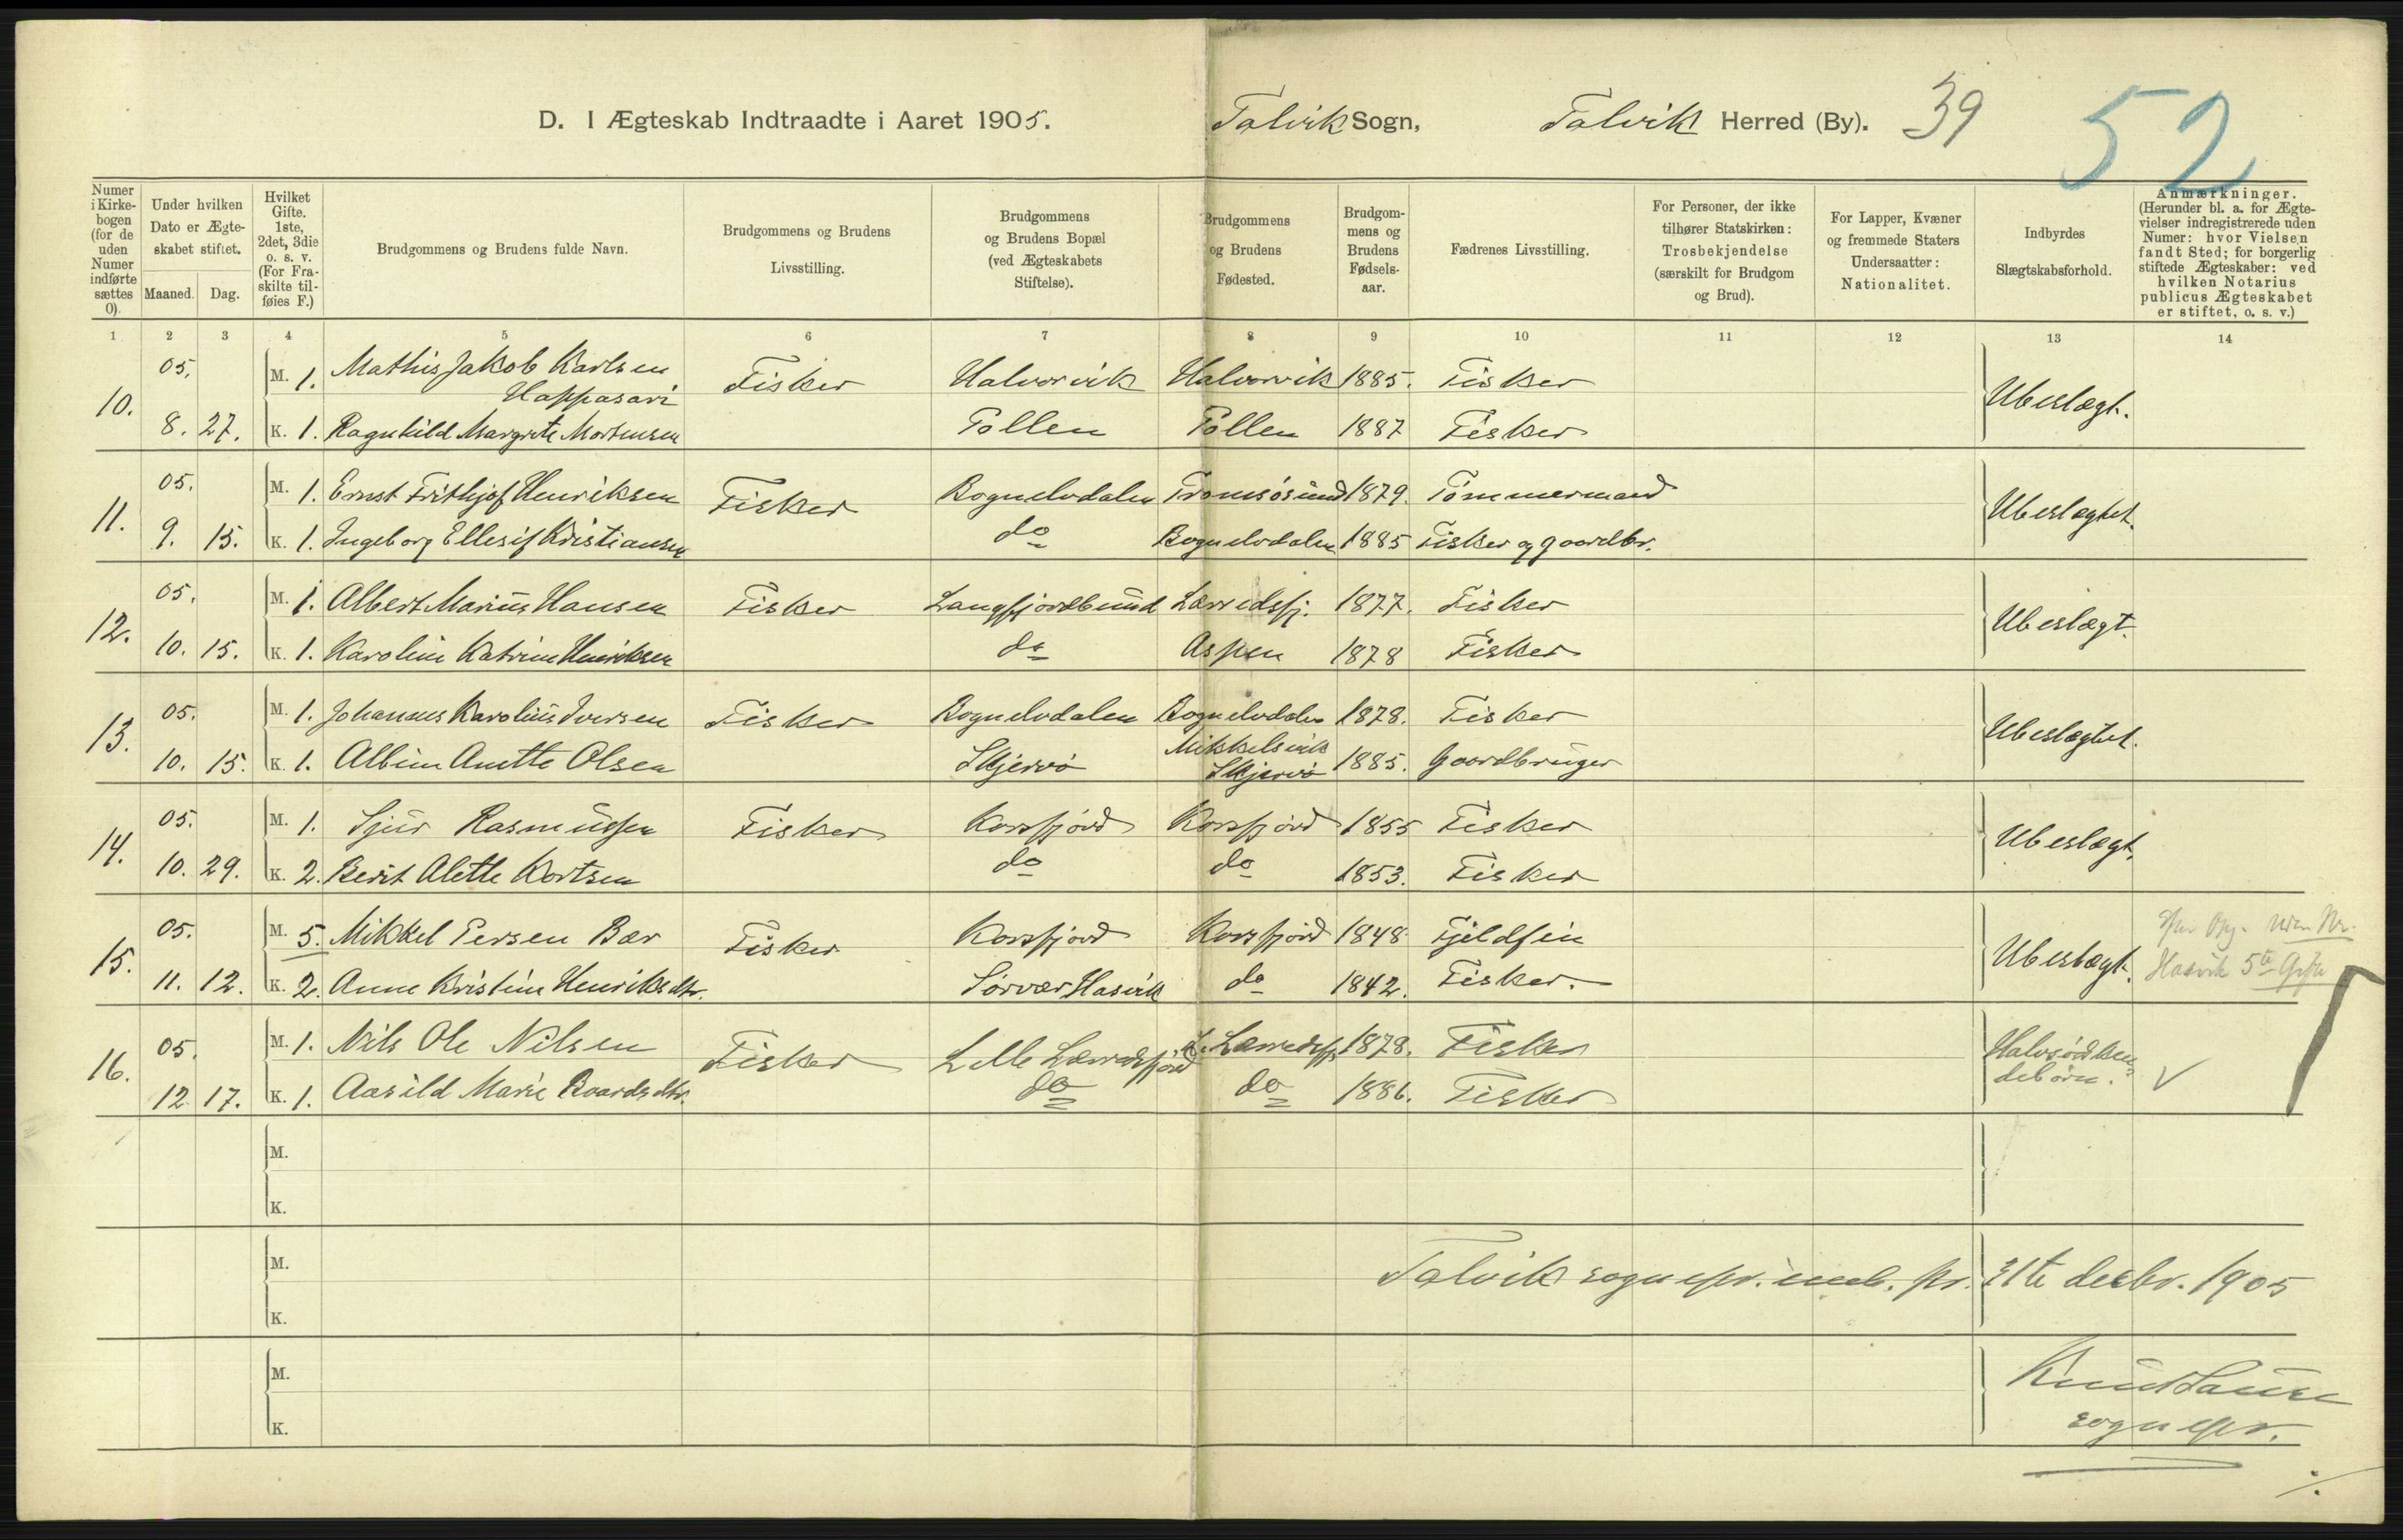 D. I Ægteskab Indtraadte i Aaret 1905. Talvik Sogn, Talvik Herred (By). 39 52
Numer i Kirkebogen (for de uden Numer indførte sættes 0).
Under hvilken Dato er Ægteskabet stiftet.
Maaned. Dag.
Hvilket Gifte. 1ste, 2det, 3die o. s. v. (For Fraskilte tilføies F.)
Brudgommens og Brudens fulde Navn.
Brudgommens og Brudens Livsstilling.
Brudgommens og Brudens Bopæl (ved Ægteskabets Stiftelse).
Brudgommens og Brudens Fødested.
Brudgommens og Brudens Fødselsaar.
Fædrenes Livsstilling.
For Personer, der ikke tilhører Statskirken: Trosbekjendelse (særskilt for Brudgom og Brud).
For Lapper, Kvæner og fremmede Staters Undersaatter: Nationalitet.
Indbyrdes Slægtskabsforhold.
Anmærkninger. (Herunder bl. a. for Ægtevielser indregistrerede uden Numer: hvor Vielsen fandt Sted; for borgerlig stiftede Ægteskaber: ved hvilken Notarius publicus Ægteskabet er stiftet, o. s. v.)
1 2 3 4 5 6 7 8 9 10 11 12 13 14
10. 05. M. 1. Mathis Jakob Karlsen Happasari Fisker Halvorvik Halvorvik 1885. Fisker Ubeslægt.
8. 27. K. 1. Ragnhild Margrete Mortensen Pollen Pollen 1887 Fisker
11. 05. M. 1. Ernst Frithjof Henriksen Fisker Bognelvdalen Tromsøsund 1879. Tømmermand Ubeslægtet.
9. 15. K. 1. Ingeborg Ellesif Kristiansen do Bognelvdalen 1885 Fisker og gaardbr.
12. 05. M. 1. Albert Marius Hansen Fisker Langfjordbund Lærredsfj. 1877. Fisker Ubeslægt.
10. 15. K. 1. Karoline Katrine Henriksen do Aspen 1878 Fisker
13. 05. M. 1. Johannes Karolius Iversen Fisker Bognelvdalen Bognelvdalen 1878. Fisker Ubeslægtet.
10. 15. K. 1. Albine Anette Olsen Skjervø Mikkelsvik Skjervø 1885. Gaardbruger
14. 05. M. 1. Sjur Rasmussen Fisker Korsfjord Korsfjord 1855 Fisker Ubeslægt.
10. 29. K. 2. Berit Alette Kortsen do do 1853. Fisker
15. 05. M. 5. Mikkel Persen Bær Fisker Korsfjord Korsfjord 1848 Fjeldfin Ubeslægt.
11. 12. K. 2. Anne Kristine Henriksdtr. Sørvær Hasvik do 1842. Fisker. Hasvik 5te Gifte
16. 05. M. 1. Nils Ole Nilsen Fisker Lille Lærredsfjord L. Lærredsfj. 1878. Fisker Halvsødskendebørn.
12 17. K. 1. Aasild Marie Baardsdtr. do do 1886. Fisker
M.
K.
M.
K.
Talvik sognepr. emb. pr. 31te decbr. 1905
M.
K.
Knut Lause
sognepr.